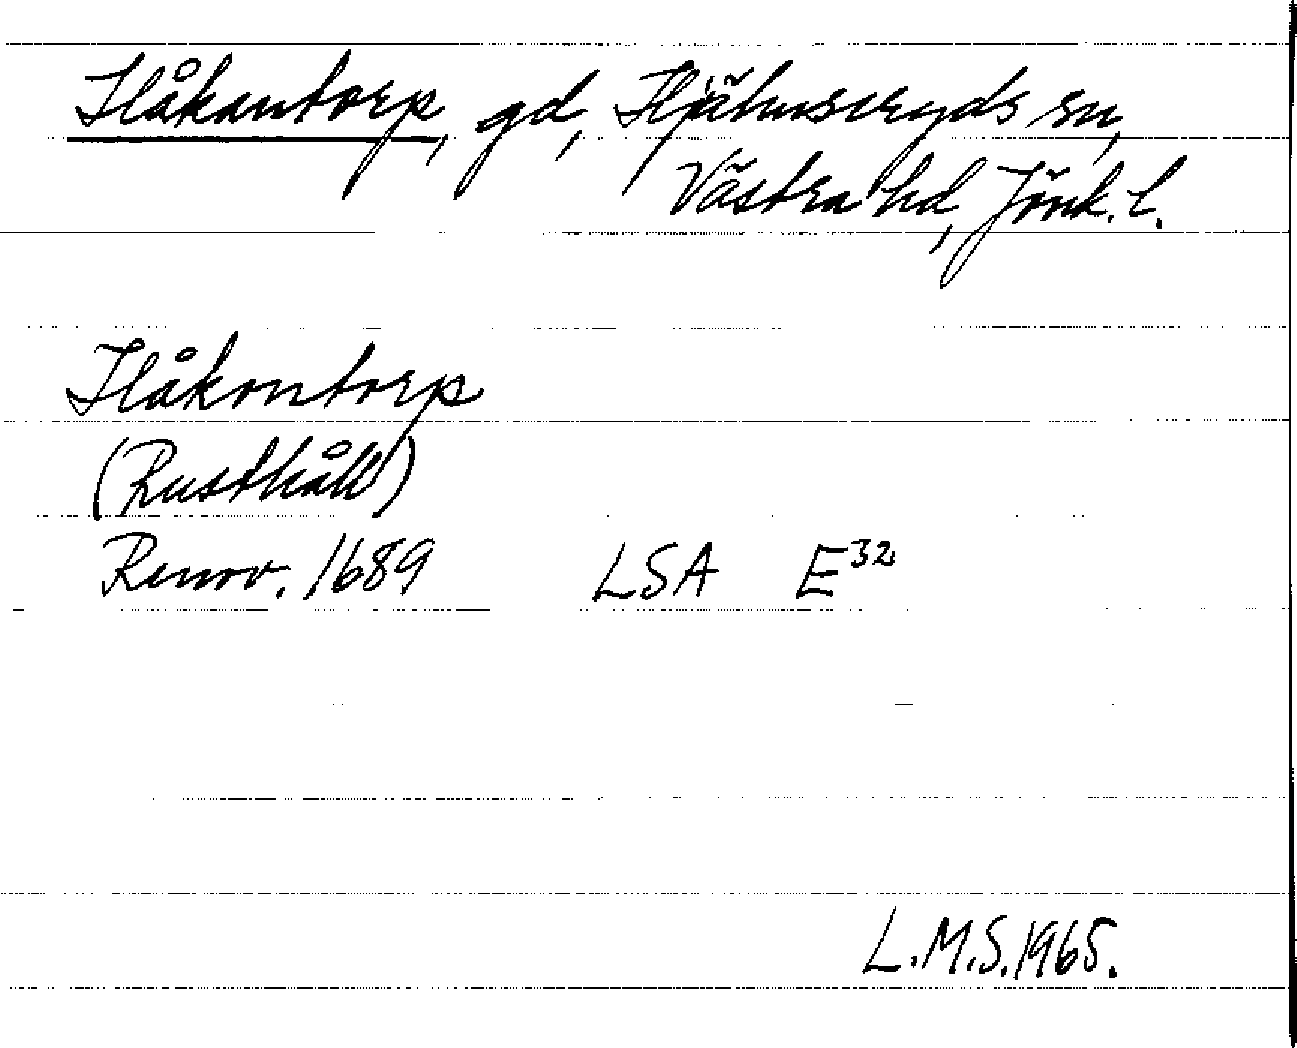 Håkantorp, gd, Hjälmseryds sn,
Västra hd, Jönk. l.
Håkontorp
(Rusthåll)
Renov. 1689 LSA E32
L.M.S. 1965.